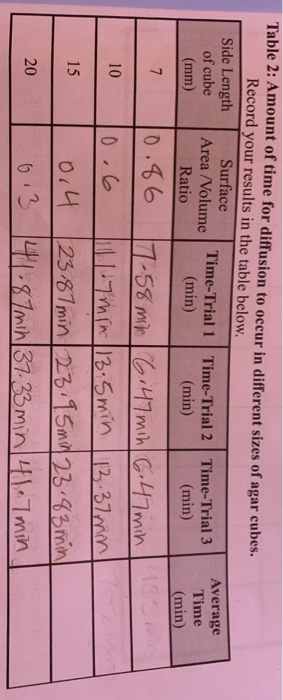 Table 2: Amount of time for diffusion to occur in different sizes of agar cubes.
Record your results in the table below.
Side Length of cube (mm) Surface Area /Volume Ratio Time-Trial 1 (min) Time-Trial 2 (min) Time-Trial 3 (min) Average Time (min)
7 0.86 7.58min 6.47min 6.47min
10 0.6 11.17min 13.5min 13.37min
15 0.4 23.87min 23.95min 23.83min
20 0.3 41.87min 37.33min 41.7min